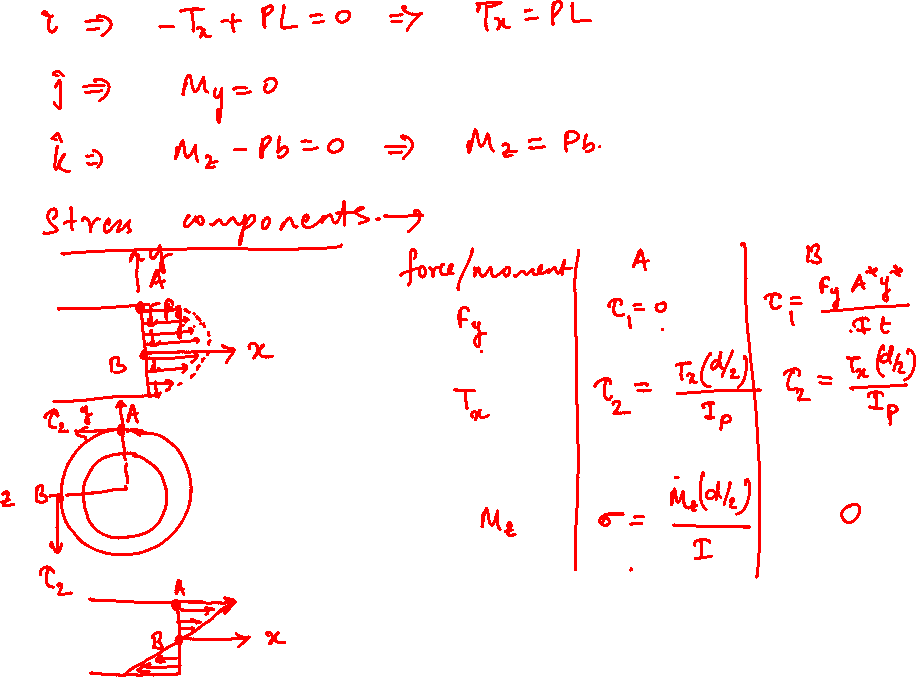 î ⇒ -Tx + PL = 0 ⇒ Tx = PL
ĵ ⇒ My = 0
k̂ ⇒ Mz - Pb = 0 ⇒ Mz = Pb.
Stress components. →
y
A
B
x
τ2 y A
z B
τ2
A
B x
force/moment | A | B
Fy | τ1 = 0 | τ1 = Fy A* y* / I t
Tx | τ2 = Tx (d/2) / Ip | τ2 = Tx (d/2) / Ip
Mz | σ = Mz (d/2) / I | 0